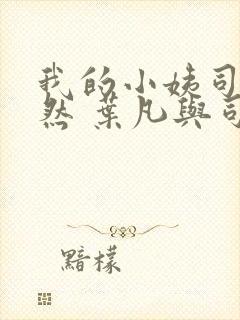 我的小姨司
然 葉凡與司
黯檬